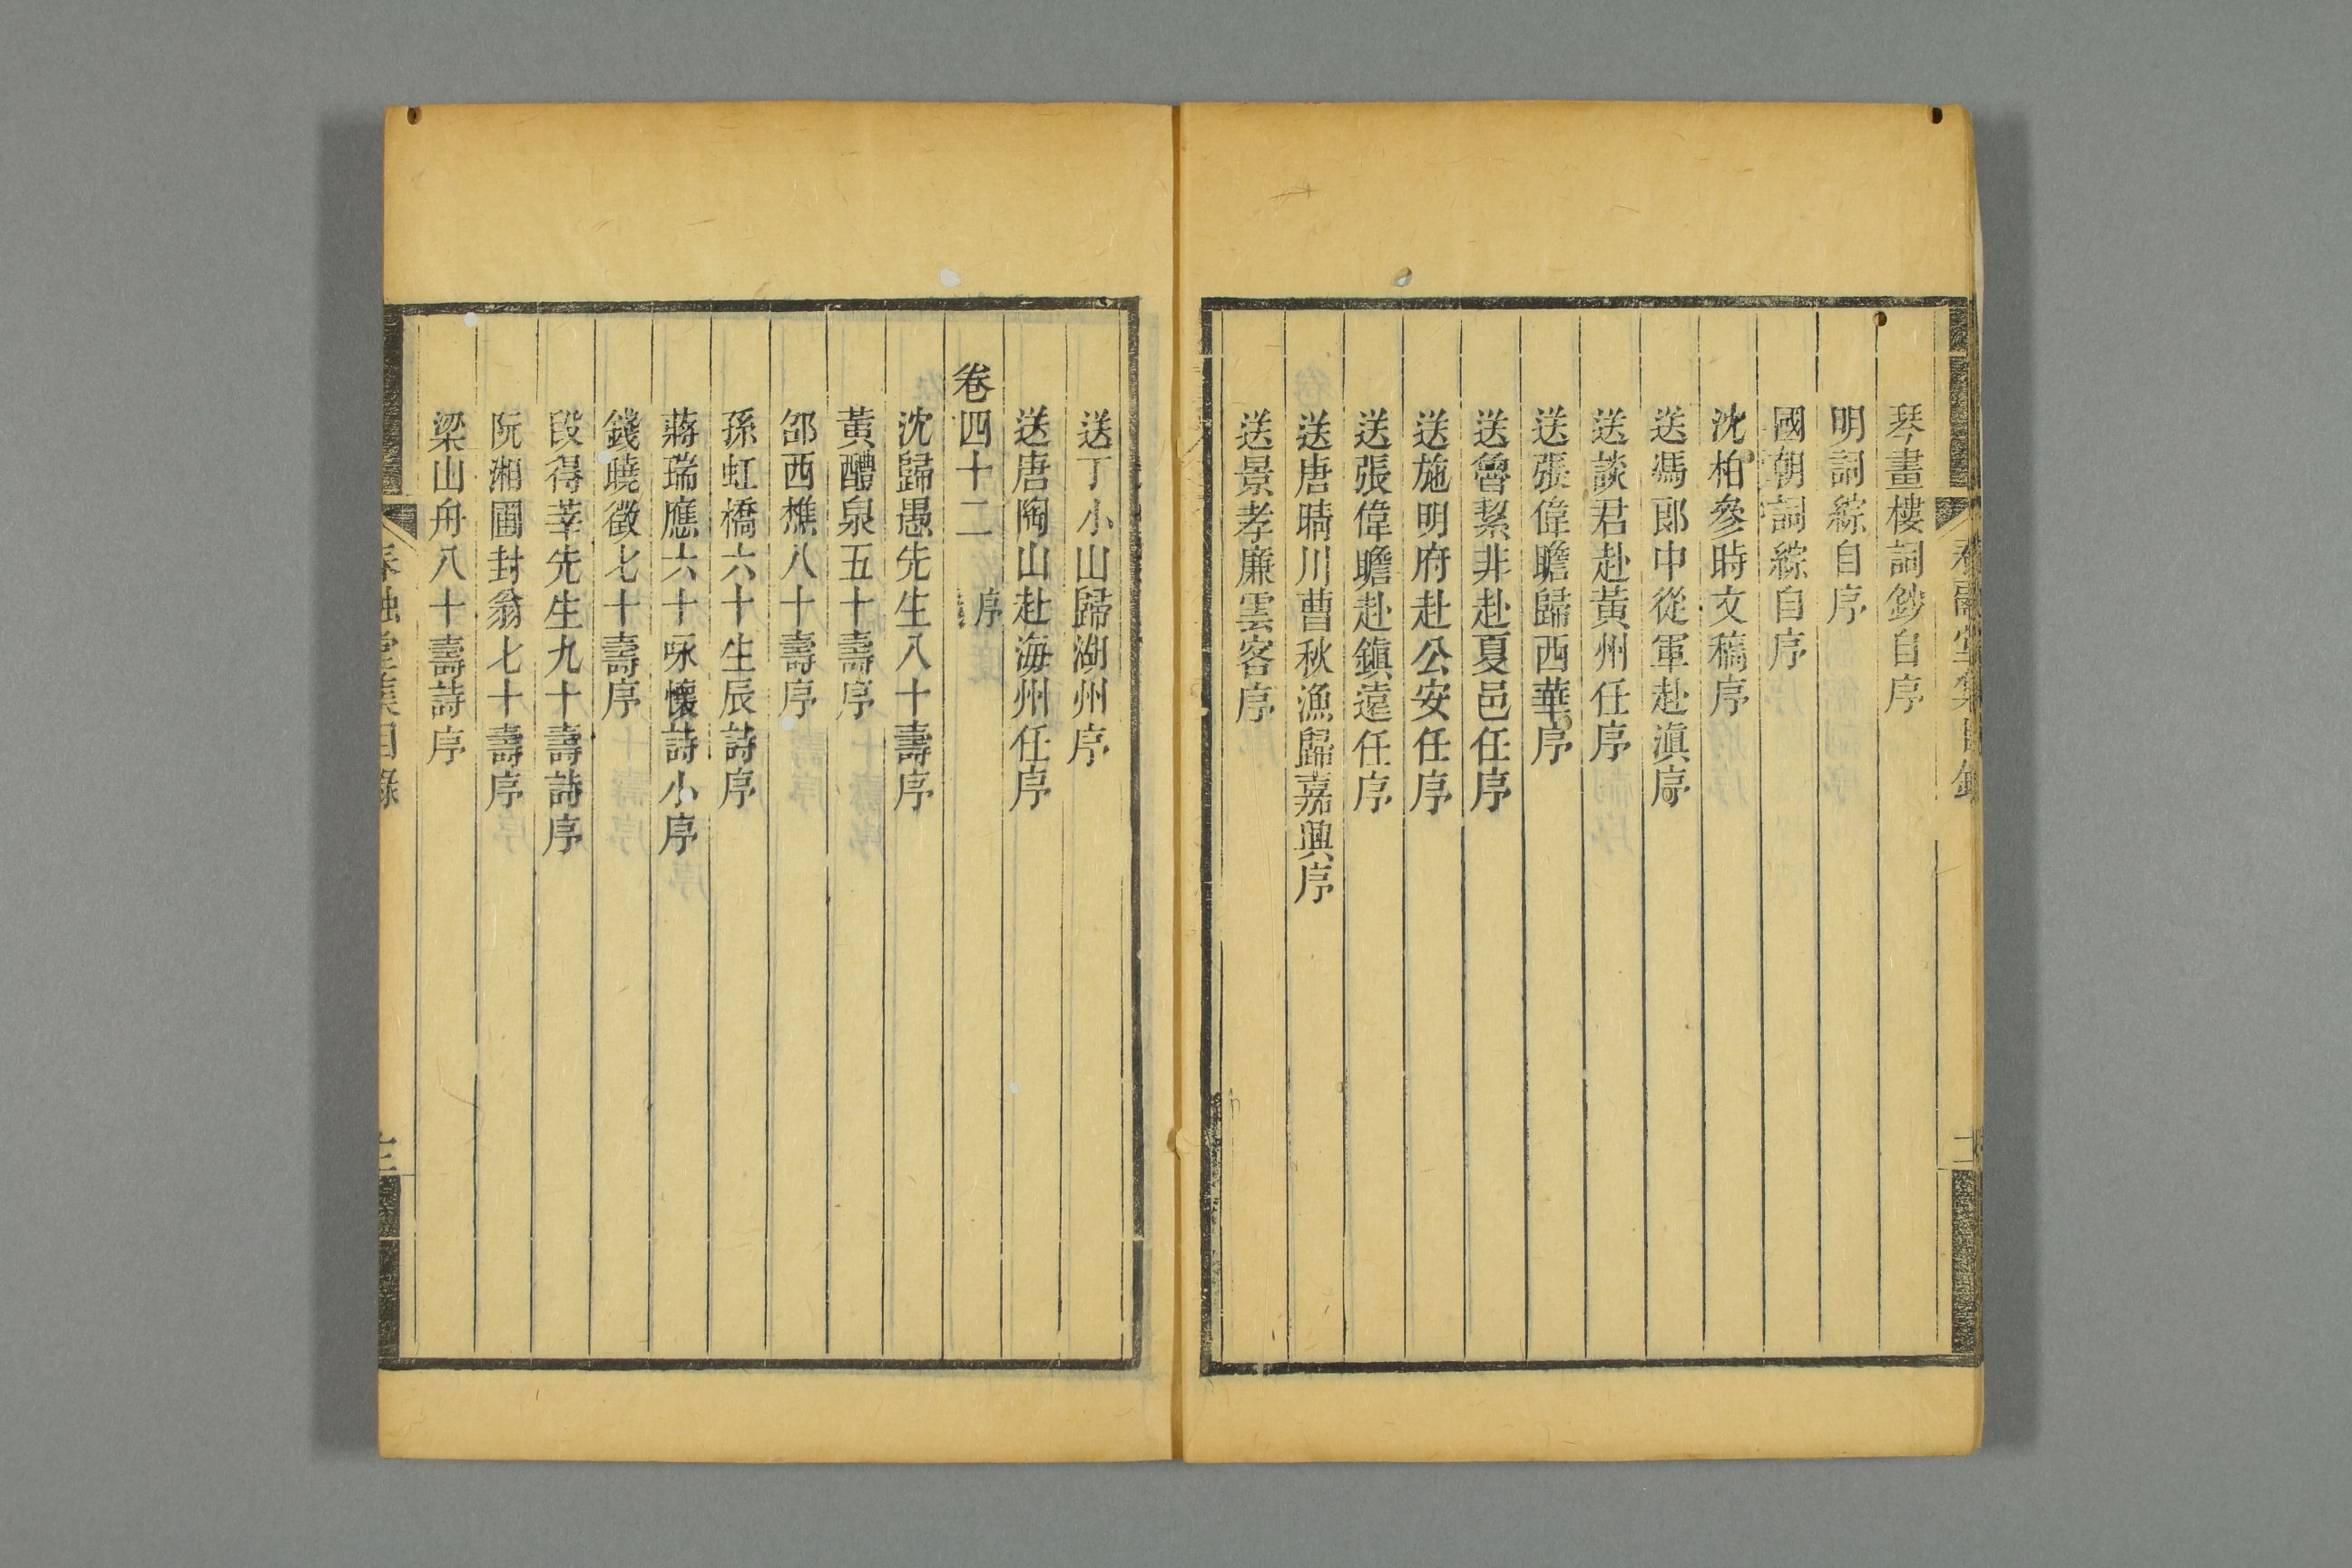 琴畫樓詞鈔自序
明詞綜自序
國朝詞綜自序
沈柏參時文稿序
送馮郎中從軍赴滇序
送談君赴黃州任序
送張偉瞻歸西華序
送魯絜非赴夏邑任序
送施明府赴公安任序
送張偉瞻赴鎮遠任序
送唐晴川曹秋漁歸嘉興序
送景孝廉雲客序
送丁小山歸湖州序
送唐陶山赴海州任序
卷四十二 序
沈歸愚先生八十壽序
黃醴泉五十壽序
邵西樵八十壽序
孫虹橋六十生辰詩序
蔣瑞應六十咏懷詩小序
錢曉徵七十壽序
段得莘先生九十壽詩序
阮湘圃封翁七十壽序
梁山舟八十壽詩序
春融堂集目錄